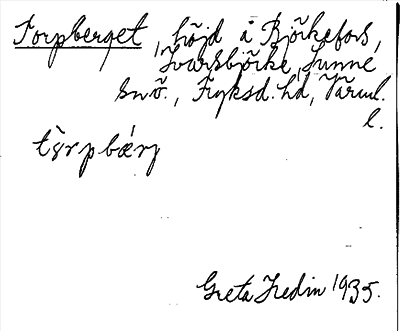 Torpberget, höjd å Björkefors,
Ivarsbjörke, Sunne
sn ö., Fryksd. hd, Värml.
l.
tòrpbǽrj
Greta Hedin 1935.